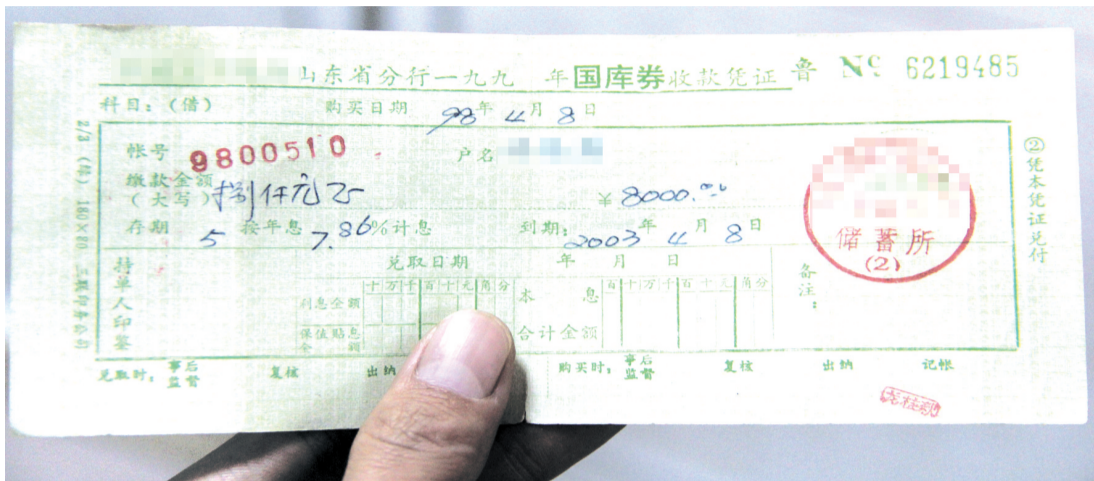 山东省分行一九九 年国库券收款凭证 鲁 Nº 6219485
科目:(借) 购买日期 98年 4月 8日
帐号 9800510 户名
缴款金额(大写) 捌仟元正 ¥ 8000.00
存期 5 按年息 7.86%计息 到期: 2003年 4月 8日
储蓄所
(2)
持单人印鉴
兑取日期 年 月 日
备注:
十万千百十元角分
百十万千百十元角分
利息金额
本息
保值贴息金额
合计金额
兑取时: 事后监督 复核 出纳
购买时: 事后监督 复核 出纳 记帐
②凭本凭证兑付